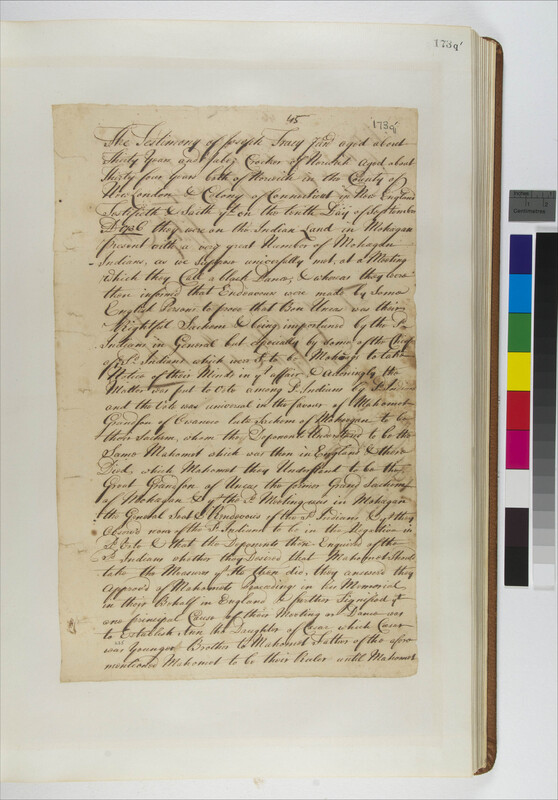 173q'
45
173q'
The Testimony of Joseph Tracy Junr aged about
Thirty Years and Jabez Crocker of Norwich aged about
Thirty four Years both of Norwich in the County of
New London & Colony of Connecticut in New England
Testifieth & Saith yt on the tenth Day of September
AD 1736 they were on the Indian Land in Mohagan
Present with a very great Number of Mohagan
Indians, as we Suppose univerfally met, at a Meeting
which they Call a black Dance, & whereas they were
then informd that Endeavours were made by Some
English Persons to prove that Ben Uncas was their
Rightful Sachem & being importuned by the Sd
Indians in General but especially by some of the Chief
of Sd Indians which were Sd to be Mohags to take
Notice of their Minds in yt affair & Accordingly the
Matter was put to Vote among Sd Indians by Sd
and the Vote was universal in the favour of Mahomet
Grandson of Owaneco late Sachem of Mohagan to be
their Sachem, whom the Deponents Understand to be the
Same Mahomet which was then in England & there
Died, which Mahomet they Understand to be the
Great Grandson of Uncas the former Grand Sachem
of Mohagan & yt the Sd Meeting was in Mohagan
the General Seat & Rendevous of the Sd Indians & yt they
Observd none of the Sd Indians to be in the Negative in
Sd Vote & that the Deponents then Enquired of the
Sd Indians whether they Desired that Mahomet Should
take the Measures yt He then did, they answered they
Approvd of Mahomets Proceeding in his Memorial
in their Behalf in England & further Signified yt
one principal Cause of their Meeting or Dance was
to Establish Ann the Daughter of Cesar which Cesar
was Younger Brother to Mahomet Father of the afore
mentioned Mahomet to be their Ruler until Mahomet